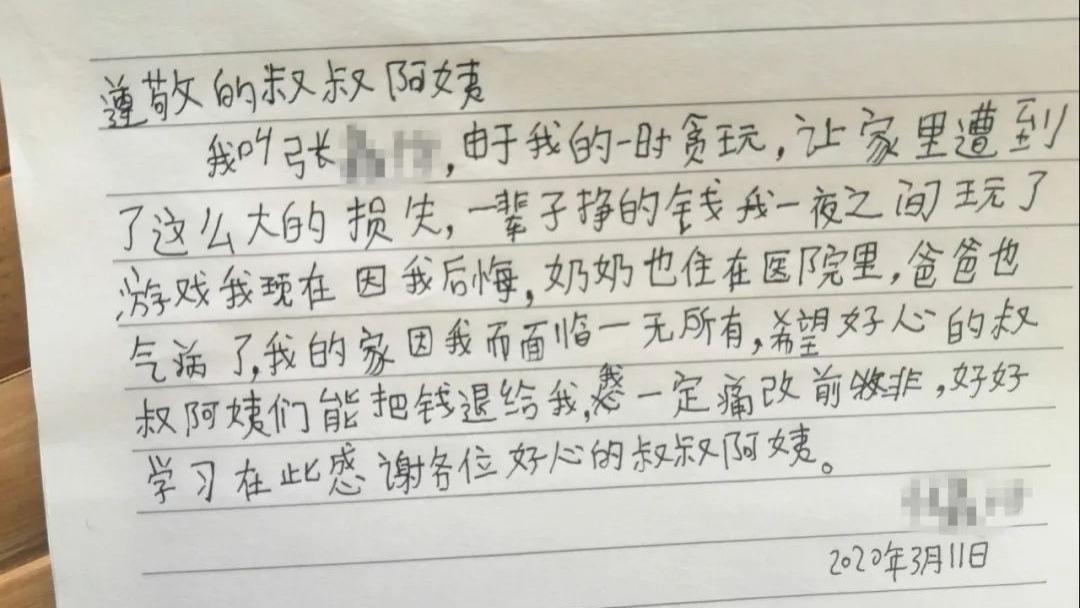 遵敬的叔叔阿姨
我叫张,由于我的一时贪玩,让家里遭到
了这么大的损失,一辈子挣的钱我一夜之间玩了
游戏我现在因我后悔,奶奶也住在医院里,爸爸也
气病了,我的家因我而面临一无所有,希望好心的叔
叔阿姨们能把钱退给我,我一定痛改前非,好好
学习在此感谢各位好心的叔叔阿姨。
2020年3月11日